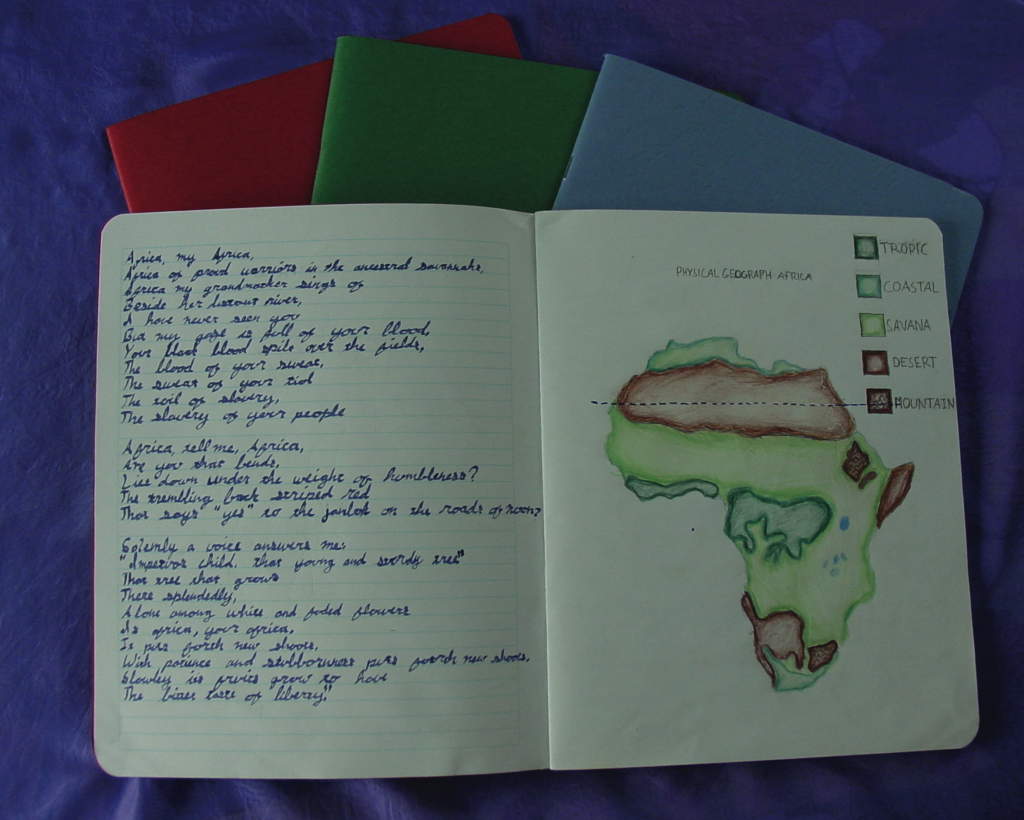 Africa, my Africa,
Africa of proud warriors in the ancestral savannahs,
Africa my grandmother sings of
Beside her distant river,
I have never seen you
But my gaze is full of your blood,
Your black blood spilt over the fields,
The blood of your sweat,
The sweat of your toil
The toil of slavery,
The slavery of your people
Africa, tell me, Africa,
Are you that bends,
Lies down under the weight of humbleness?
The trembling back striped red
That says "yes" to the on the roads of noon?
Solemnly a voice answers me:
"Impetvos child, that young and sturdy tree"
That tree that grows
There splendedly,
Alone among white and faded flowers
Is africa, your africa,
It puts forth new shoots,
With patience and stubbornness puts fourth new shoots,
Slowley its fruits grow to have
The bitter taste of liberty."
PHYSICAL GEOGRAPH AFRICA
TROPIC
COASTAL
SAVANA
DESERT
MOUNTAIN